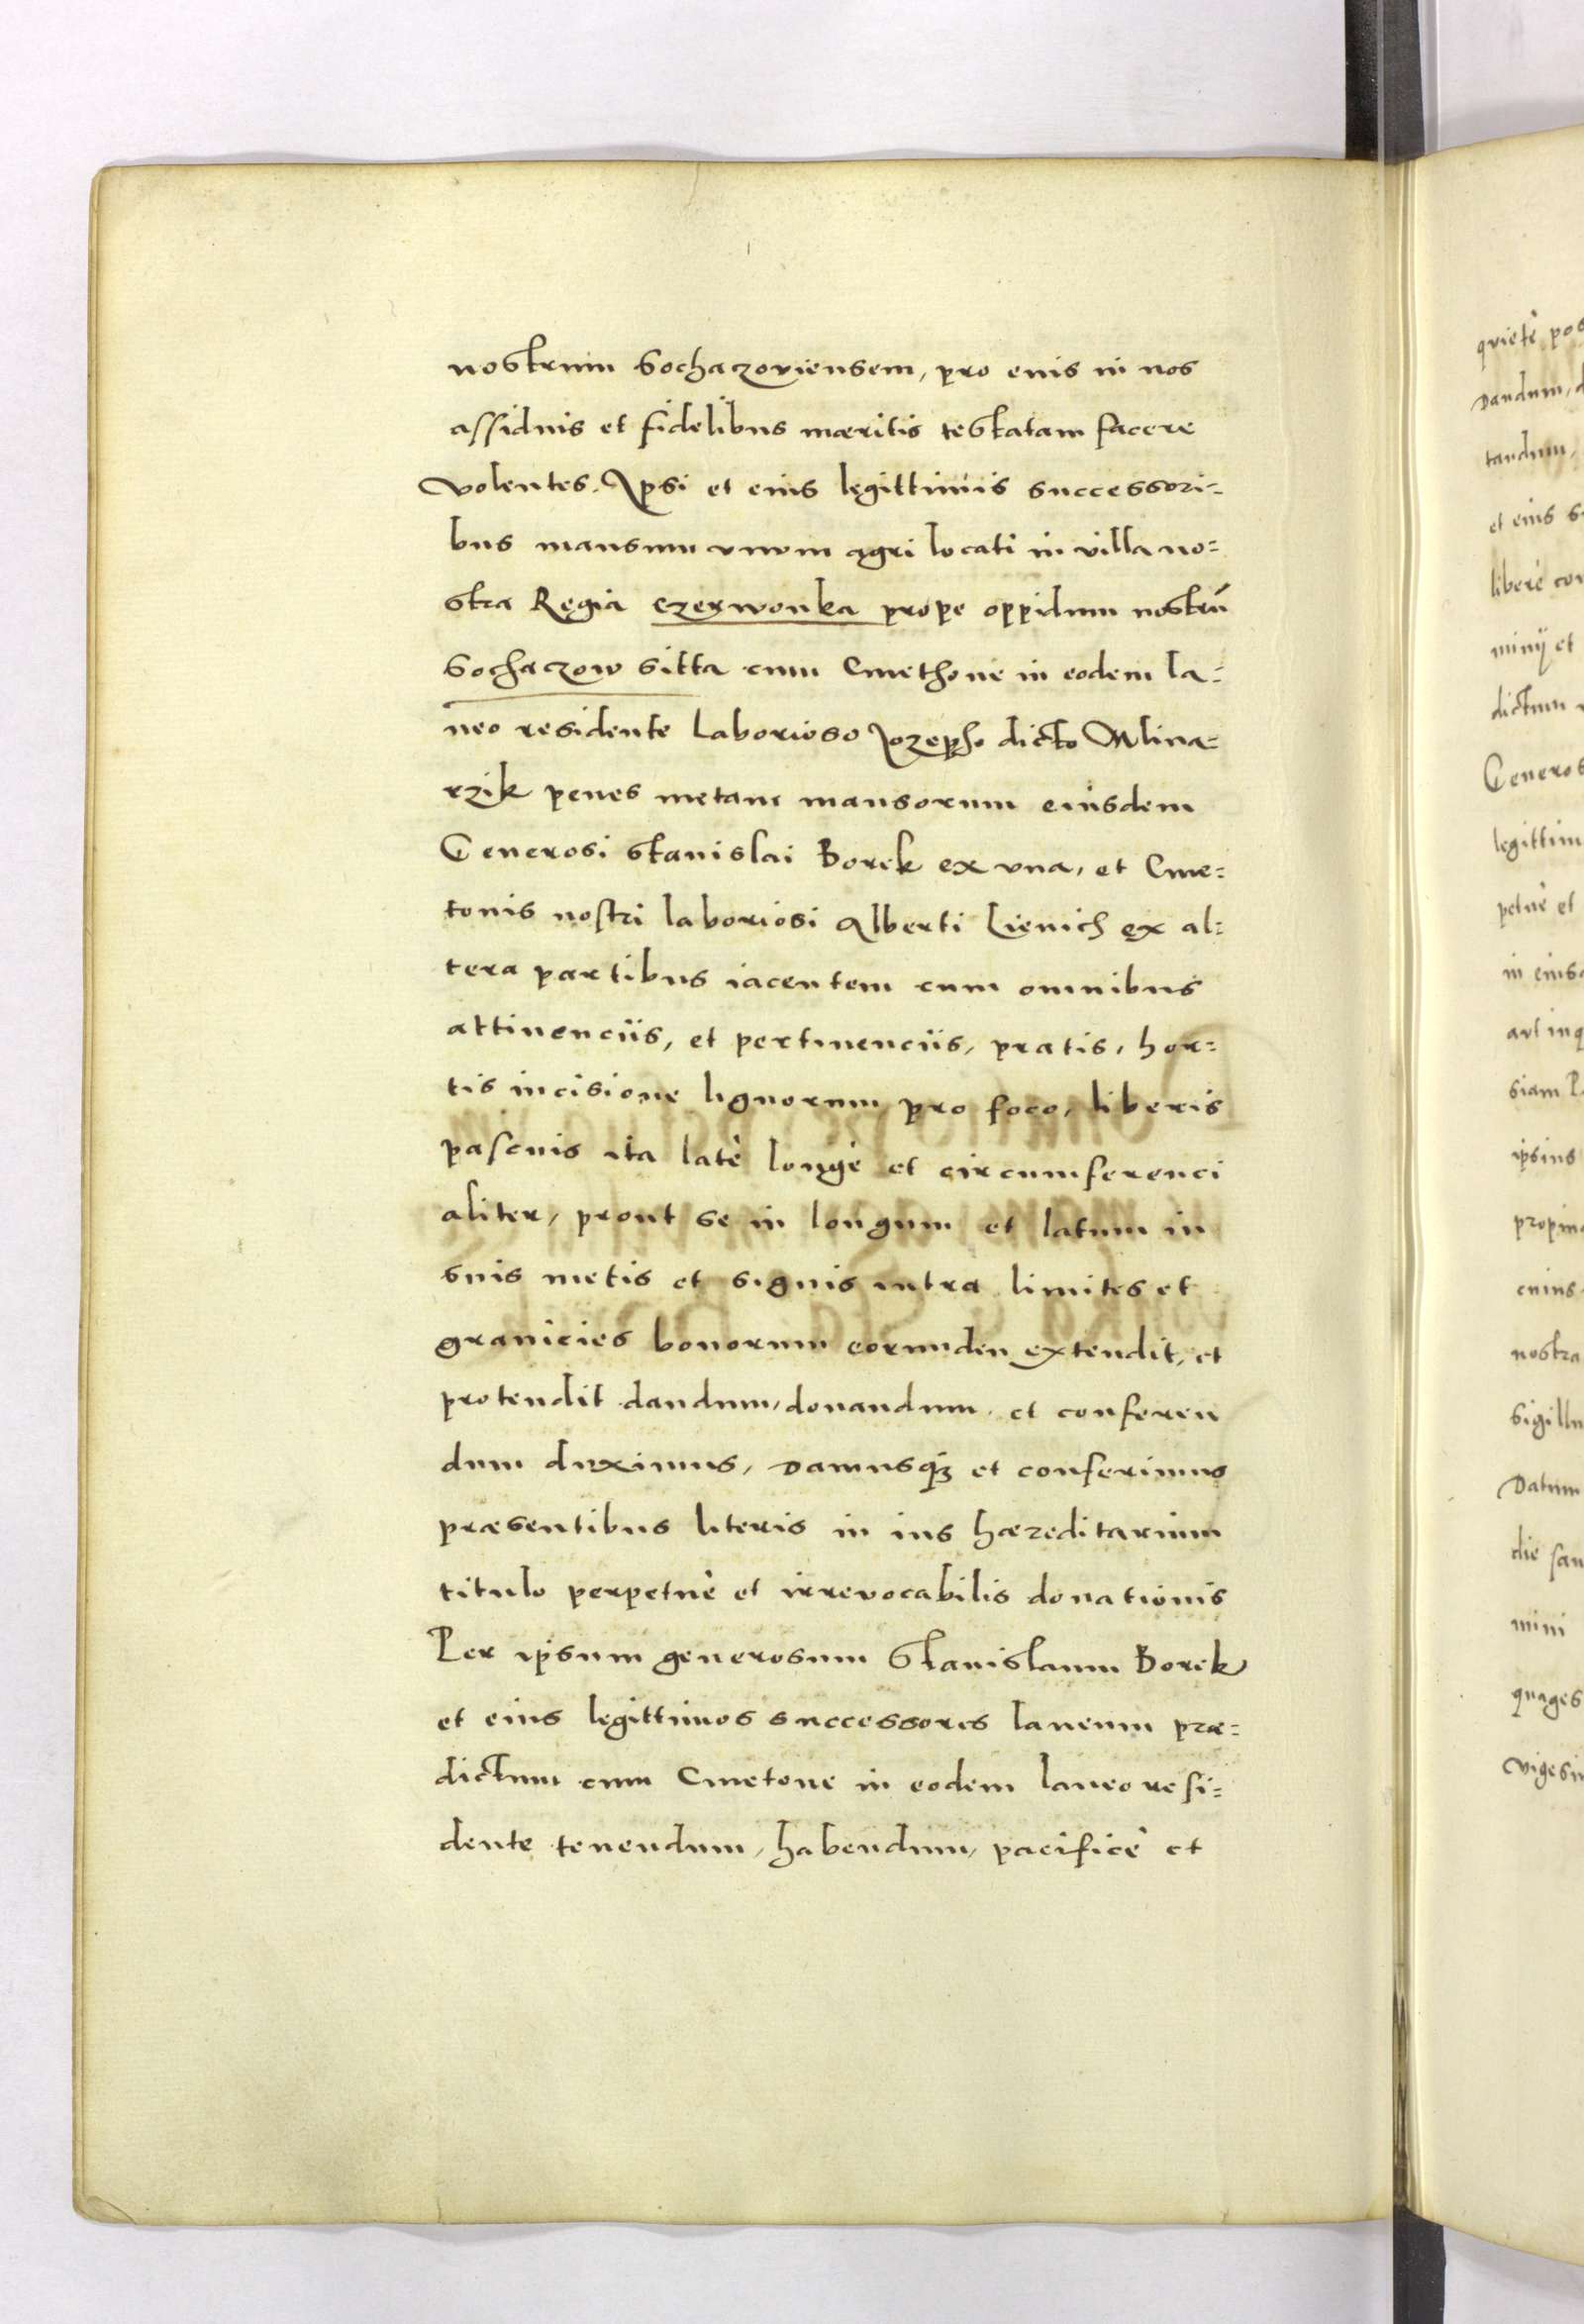 nostrum Sochaczoviensem, pro euis in nos
assiduis et fidelibus mæritis testatam facere
volentes. Ipsi et eius legittimis successori=
bus mansum vnum agri locati in villa no=
stra Regia Czerwonka prope oppidum nostrū
Sochaczow sitta cum Cmethone in eodem la=
neo residente laborioso Jozepho dicto Mlina=
rzik penes metam mansorum eiusdem
Generosi Stanislai Borek ex vna, et Cme=
tonis nostri laboriosi Alberti Lienich ex al=
tera partibus iacentem cum omnibus
attinenciis, et pertinenciis, pratis, hor=
tis incisione lignorum pro foco, liberis
pascuis ita latè longè et circumferenci
aliter, prout se in longum et latum in
suis metis et signis intra limites et
granicies bonorum eorunden extendit, et
protendit dandum, donandum, et conferen
dum duximus, Damusq₃ et conferimus
præsentibus literis in ius hæreditarium
titulo perpetuè et irrevocabilis donationis
Per ipsum generosum Stanislaum Borek
et eius legittimos successores laneum præ=
dictum cum Cmetone in eodem laneo resi=
dente tenendum, habendum, pacificè et
quietè pos
Dandum, d
tandum,
et eius s
liberè con
minij et
dictum
Generos
legittim
petuè et
in eius
aut inq
siam P
ipsius
propin
cuius
nostra
Sigillu
Datum
die san
mini
quages
vigesi